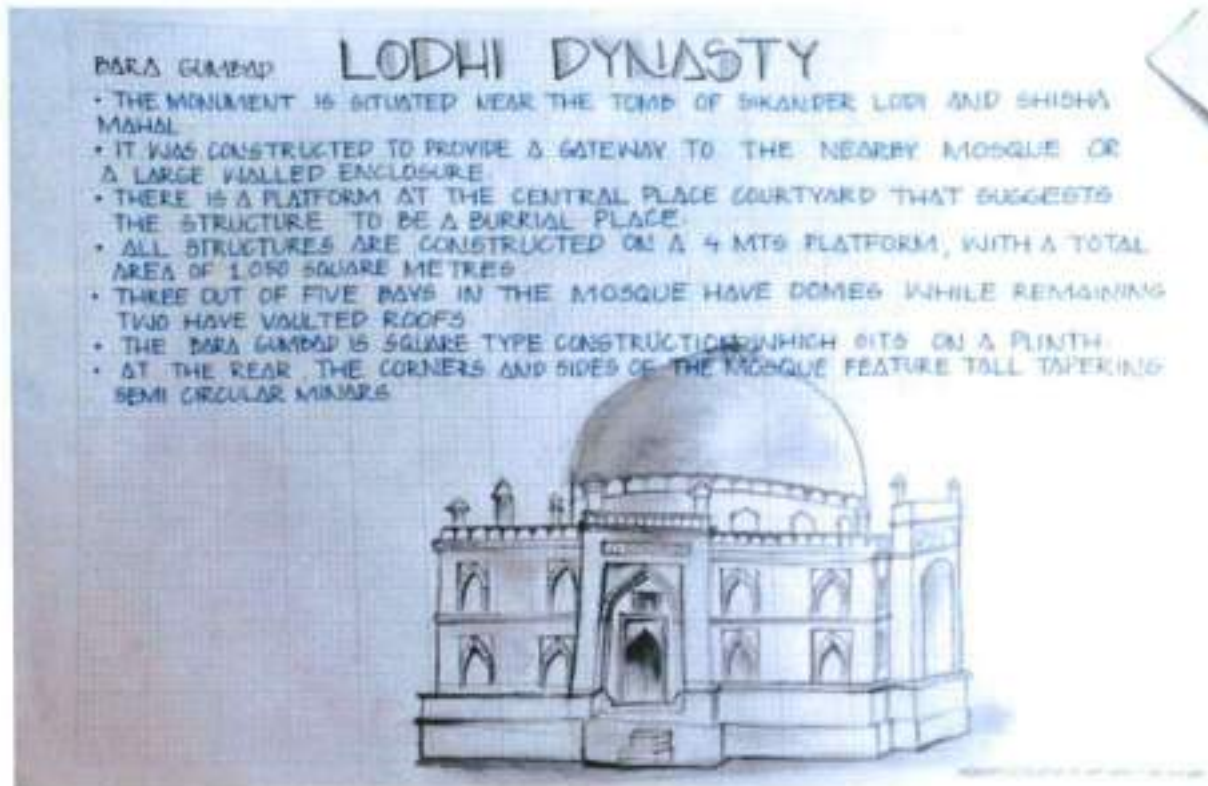 LODHI DYNASTY
BARA GUMBAD
• THE MONUMENT IS SITUATED NEAR THE TOMB OF SIKANDER LODI AND SHISHA
MAHAL
• IT WAS CONSTRUCTED TO PROVIDE A GATEWAY TO THE NEARBY MOSQUE OR
A LARGE WALLED ENCLOSURE.
• THERE IS A PLATFORM AT THE CENTRAL PLACE COURTYARD THAT SUGGESTS
THE STRUCTURE TO BE A BURRIAL PLACE.
• ALL STRUCTURES ARE CONSTRUCTED ON A 4 MTS PLATFORM, WITH A TOTAL
AREA OF 1050 SQUARE METRES
• THREE OUT OF FIVE BAYS IN THE MOSQUE HAVE DOMES WHILE REMAINING
TWO HAVE VAULTED ROOFS
• THE BARA GUMBAD IS SQUARE TYPE CONSTRUCTION WHICH SITS ON A PLINTH.
• AT THE REAR, THE CORNERS AND SIDES OF THE MOSQUE FEATURE TALL TAPERING
SEMI CIRCULAR MINARS